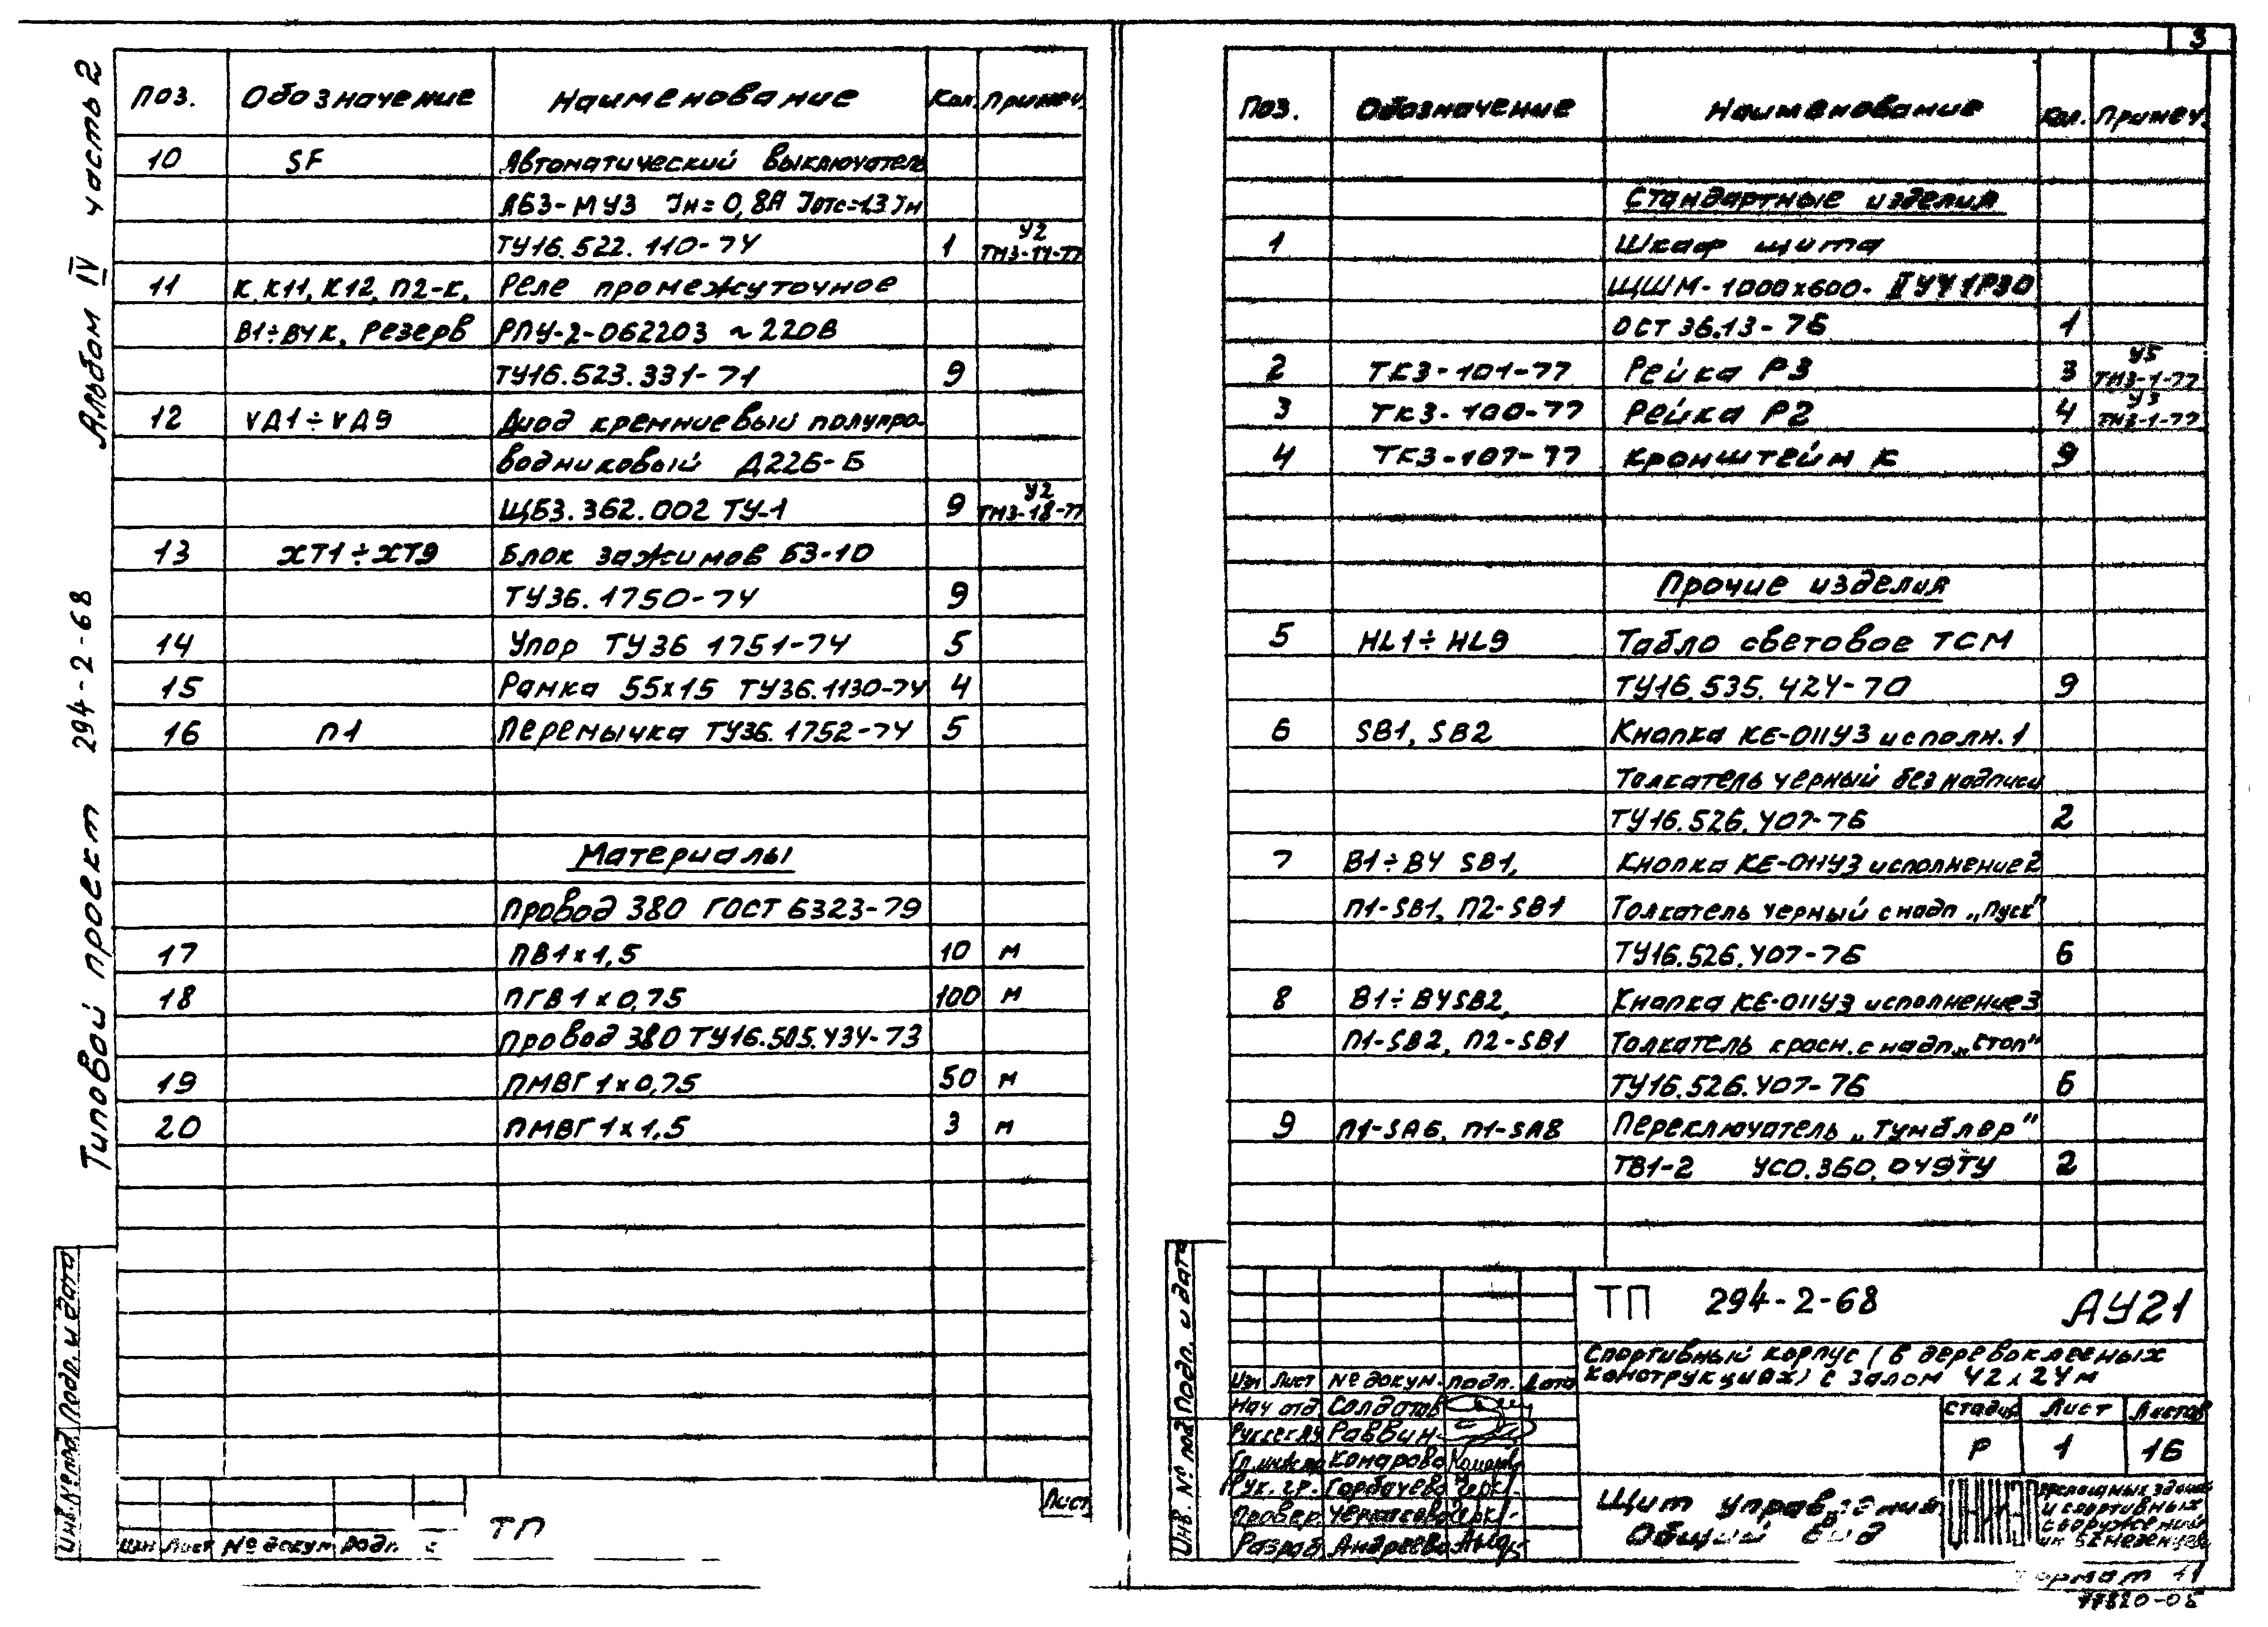 Типовой проект 294-2-68 Альбом IV часть 2
Поз. Обозначение Наименование Кол. Примеч.
10 SF Автоматический выключатель
АБ3-МУ3 Iн=0,8А Iотс=1,3Iн
ТУ16.522.110-74 1 У2 ТМ3-14-77
11 К, К11, К12, П2-К, Реле промежуточное
В1÷В4К, Резерв РПУ-2-062203 ~220В
ТУ16.523.331-71 9
12 VД1÷VД9 Диод кремниевый полупро-
водниковый Д226-Б
ЩБ3.362.002 ТУ-1 9 У2 ТМ3-18-77
13 ХТ1÷ХТ9 Блок зажимов Б3-10
ТУ36.1750-74 9
14 Упор ТУ36 1751-74 5
15 Рамка 55х15 ТУ36.1130-74 4
16 П1 Перемычка ТУ36.1752-74 5
Материалы
Провод 380 ГОСТ 6323-79
17 ПВ1х1,5 10 м
18 ПГВ1х0,75 100 м
Провод 380 ТУ16.505.434-73
19 ПМВГ1х0,75 50 м
20 ПМВГ1х1,5 3 м
Инв.№ подл. Подп. и дата
Изм Лист № докум Подп.
ТП
Лист
3
Поз. Обозначение Наименование Кол. Примеч.
Стандартные изделия
1 Шкаф щита
ЩШМ-1000х600-IIУ4 1Р30
ОСТ 36.13-76 1
2 ТК3-101-77 Рейка Р3 3 У5 ТМ3-1-77
3 ТК3-100-77 Рейка Р2 4 У3 ТМ3-1-77
4 ТК3-107-77 Кронштейн К 9
Прочие изделия
5 HL1÷HL9 Табло световое ТСМ
ТУ16.535.424-70 9
6 SB1, SB2 Кнопка КЕ-011У3 исполн. 1
Толкатель черный без надписи
ТУ16.526.407-76 2
7 В1÷В4 SB1, Кнопка КЕ-011У3 исполнение 2
П1-SB1, П2-SB1 Толкатель черный с надп „Пуск"
ТУ16.526.407-76 6
8 В1÷В4SB2, Кнопка КЕ-011У3 исполнение 3
П1-SB2, П2-SB1 Толкатель красн. с надп. „Стоп"
ТУ16.526.407-76 6
9 П1-SA6, П1-SA8 Переключатель „Тумблер"
ТВ1-2 УС0.360.049ТУ 2
Инв. № под Подп. и дата
ТП 294-2-68 АУ21
Спортивный корпус (в деревоклееных
конструкциях) с залом 42х24м
Изм Лист № докум. Подп. Дата
Нач отд Солдатов
Рук сек АУ Раввин
Гл. инж пр Комарова
Рук. гр. Горбачева
Провер. Черкасова
Разраб Андреева
Стадия Лист Листов
Р 1 16
Щит управления
Общий вид
зрелищных зданий
и спортивных
сооружений
им Б.С. Мезенцева
Формат 11